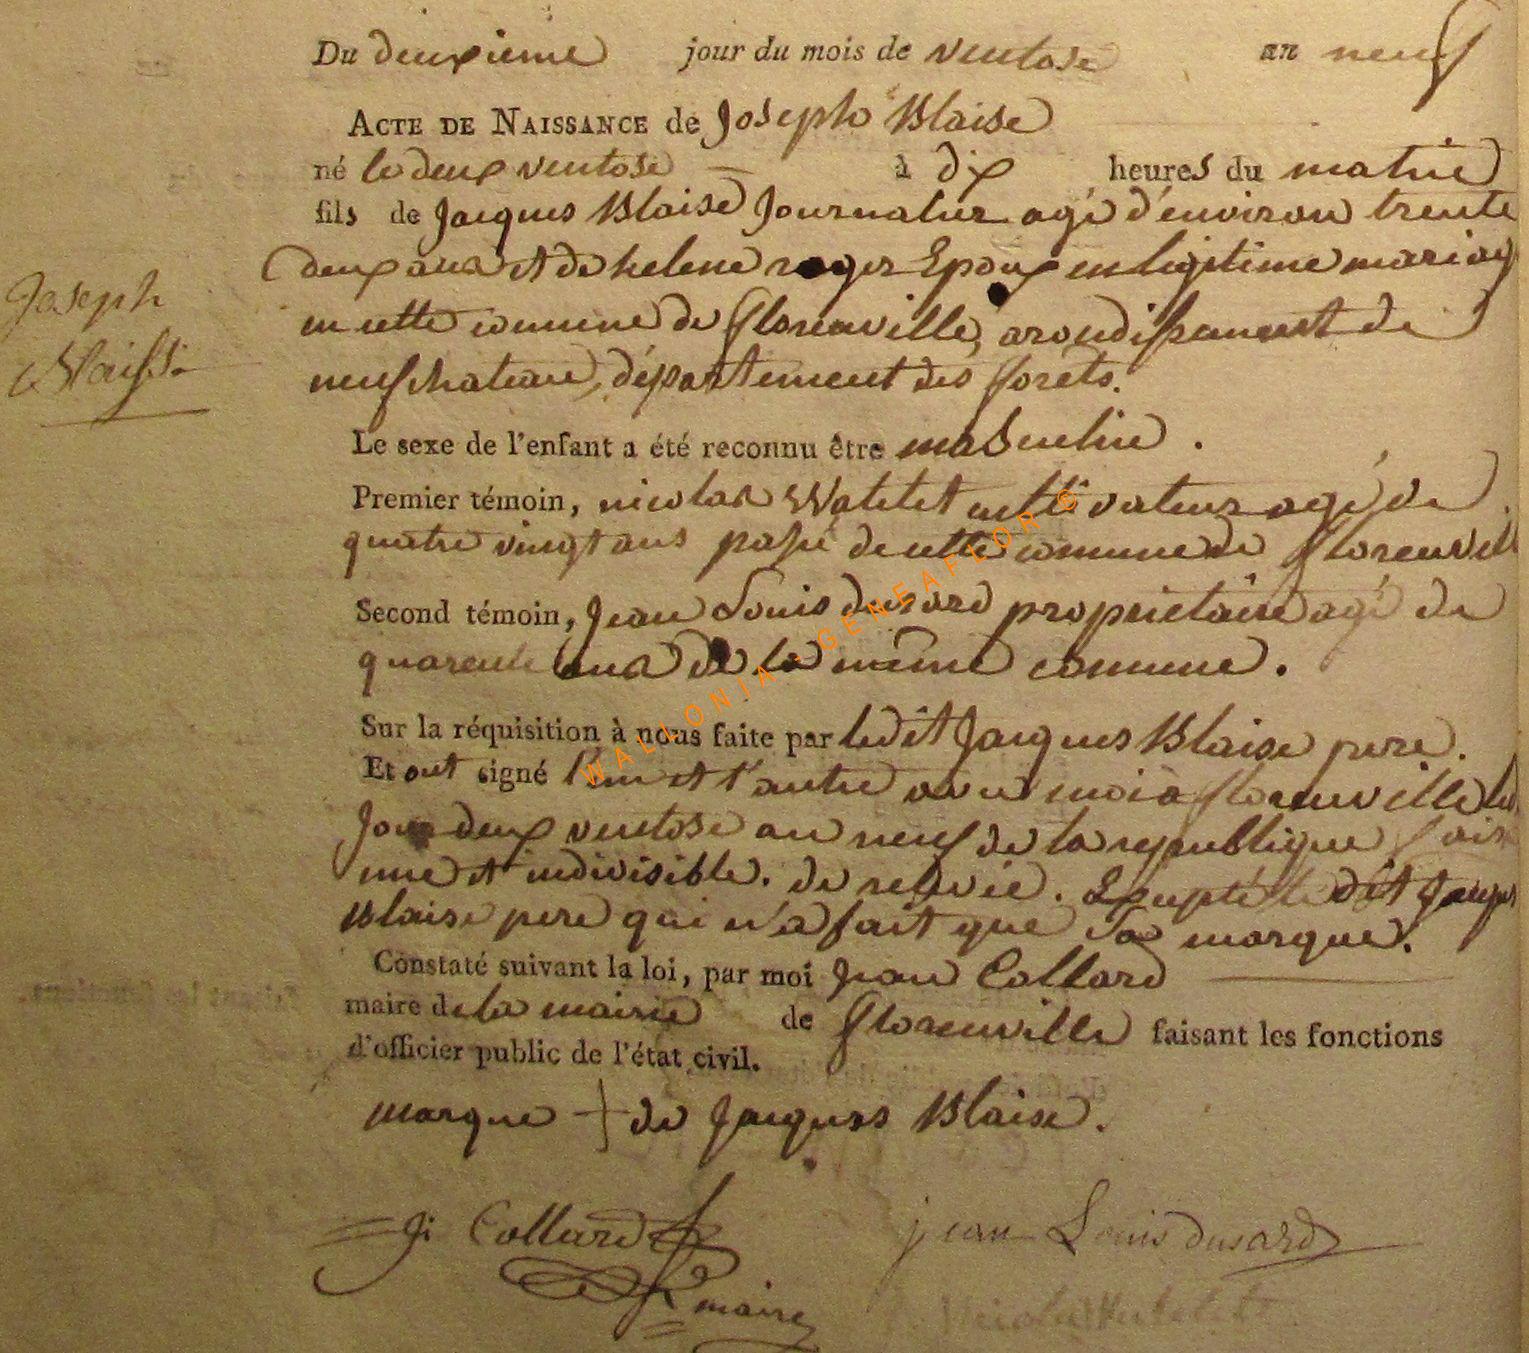 Du deuxieme jour du mois de ventose an neuf
ACTE DE NAISSANCE de Joseph Blaise
né le deux ventose à dix heures du matin
fils de Jacques Blaise Journalier agé d'environ trente
deux ans et de helene roger Epoux en legitime mariag
Joseph
Blaise
en cette comune de florenville, arondissement de
neufchateau, département des forêts.
Le sexe de l'enfant a été reconnu être masculin.
Premier témoin, nicolas Watelet cultivateur agé de
quatre vingt ans passé de cette comune de florenvill
Second témoin, Jean Louis dusard propriétaire agé de
quarente ans de la même comune.
Sur la réquisition à nous faite par ledit Jacques Blaise pere.
Et ont signé l'un et l'autre avec moi a florenville le
Jour deux ventose an neuf de la republique
une et indivisible. Excepté le dit Jacques
Blaise pere qui n'a fait que Sa marque.
Constaté suivant la loi, par moi Jean Collard
maire de la mairie de florenville faisant les fonctions
d'officier public de l'état civil.
marque + de Jacques Blaise.
Collard jean Louis dusard
maire
WALLONIA - GENEAFLORE